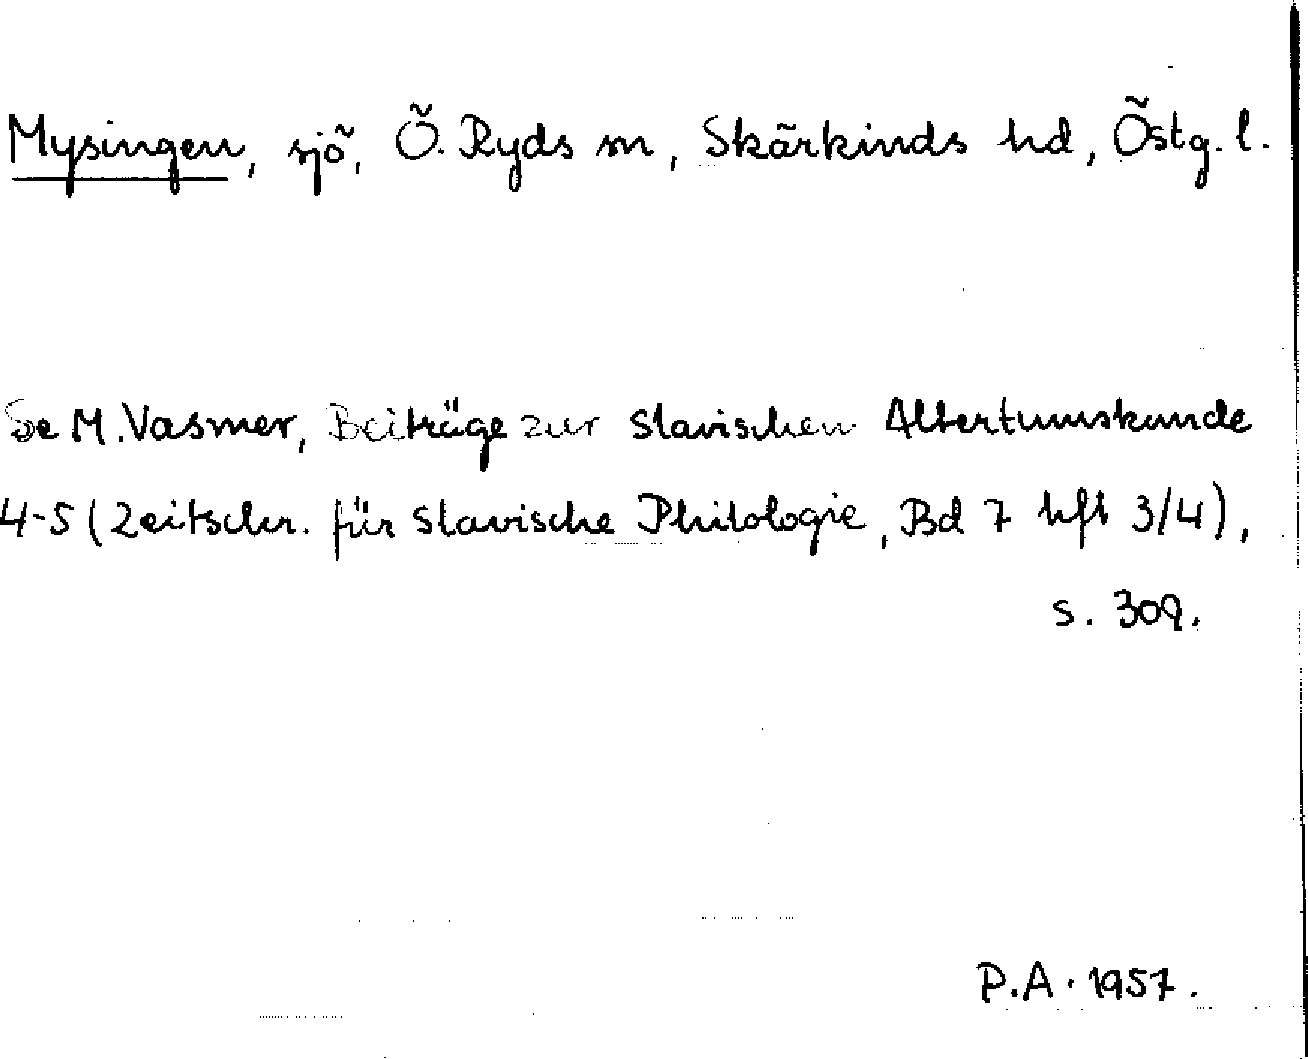 Mysingen, sjö, Ö. Ryds sn, Skärkinds hd, Östg. l.
Se M. Vasmer, Beiträge zur slavischen Altertumskunde
4-5 (Zeitschr. für slavische Philologie, Bd 7 hft 3/4),
s. 309.
P.A. 1957.